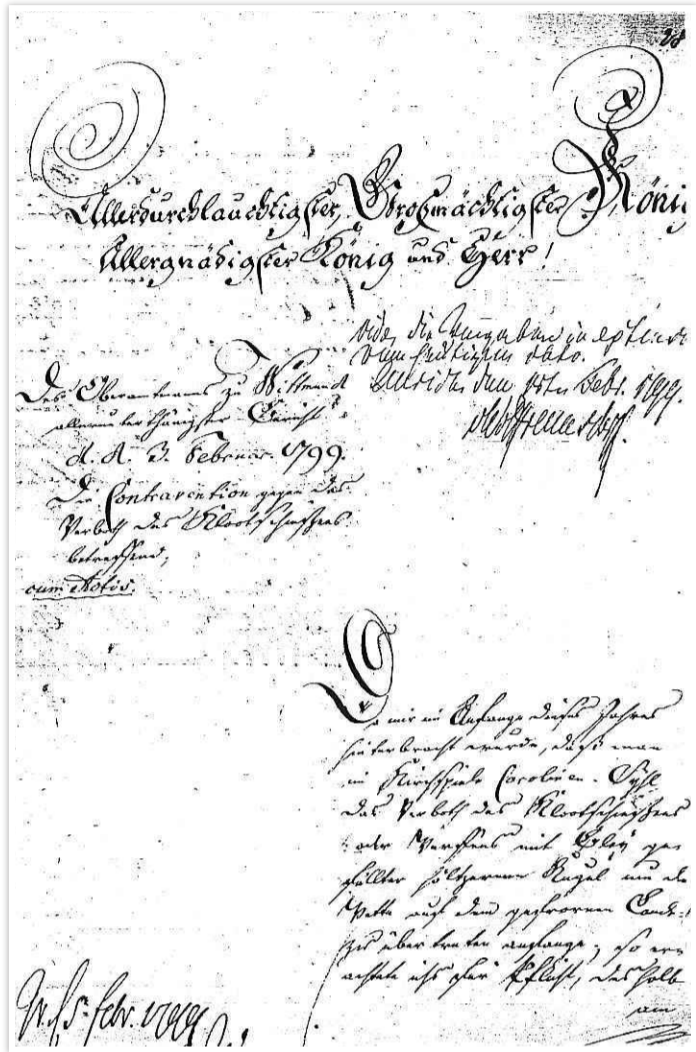 28
Allerdurchlauchtigster, Großmächtigster König
Allergnädigster König und Herr!
Des Oberamtmanns zu Wittmund
allerunterthänigster Bericht
d. d. 3. Februar. 1799.
Die Contravention gegen das
Verboth des Klootschießens
betreffend,
cum Actis.
vide, die
vom heutigen dato.
Aurich den Febr. 1799.
Da mir im Anfange dieses Jahres
hinterbracht wurde, daß man
im Kirchspiele Carolinen-Syhl
das Verboth des Klootschießens
oder Werfens mit Bley ge
füllter höltzerner Kugel um die
Wette auf dem gefrornen Lande
zu übertreten anfange; so er
achtete ichs für Pflicht, deshalb
am
5. Febr. 1799